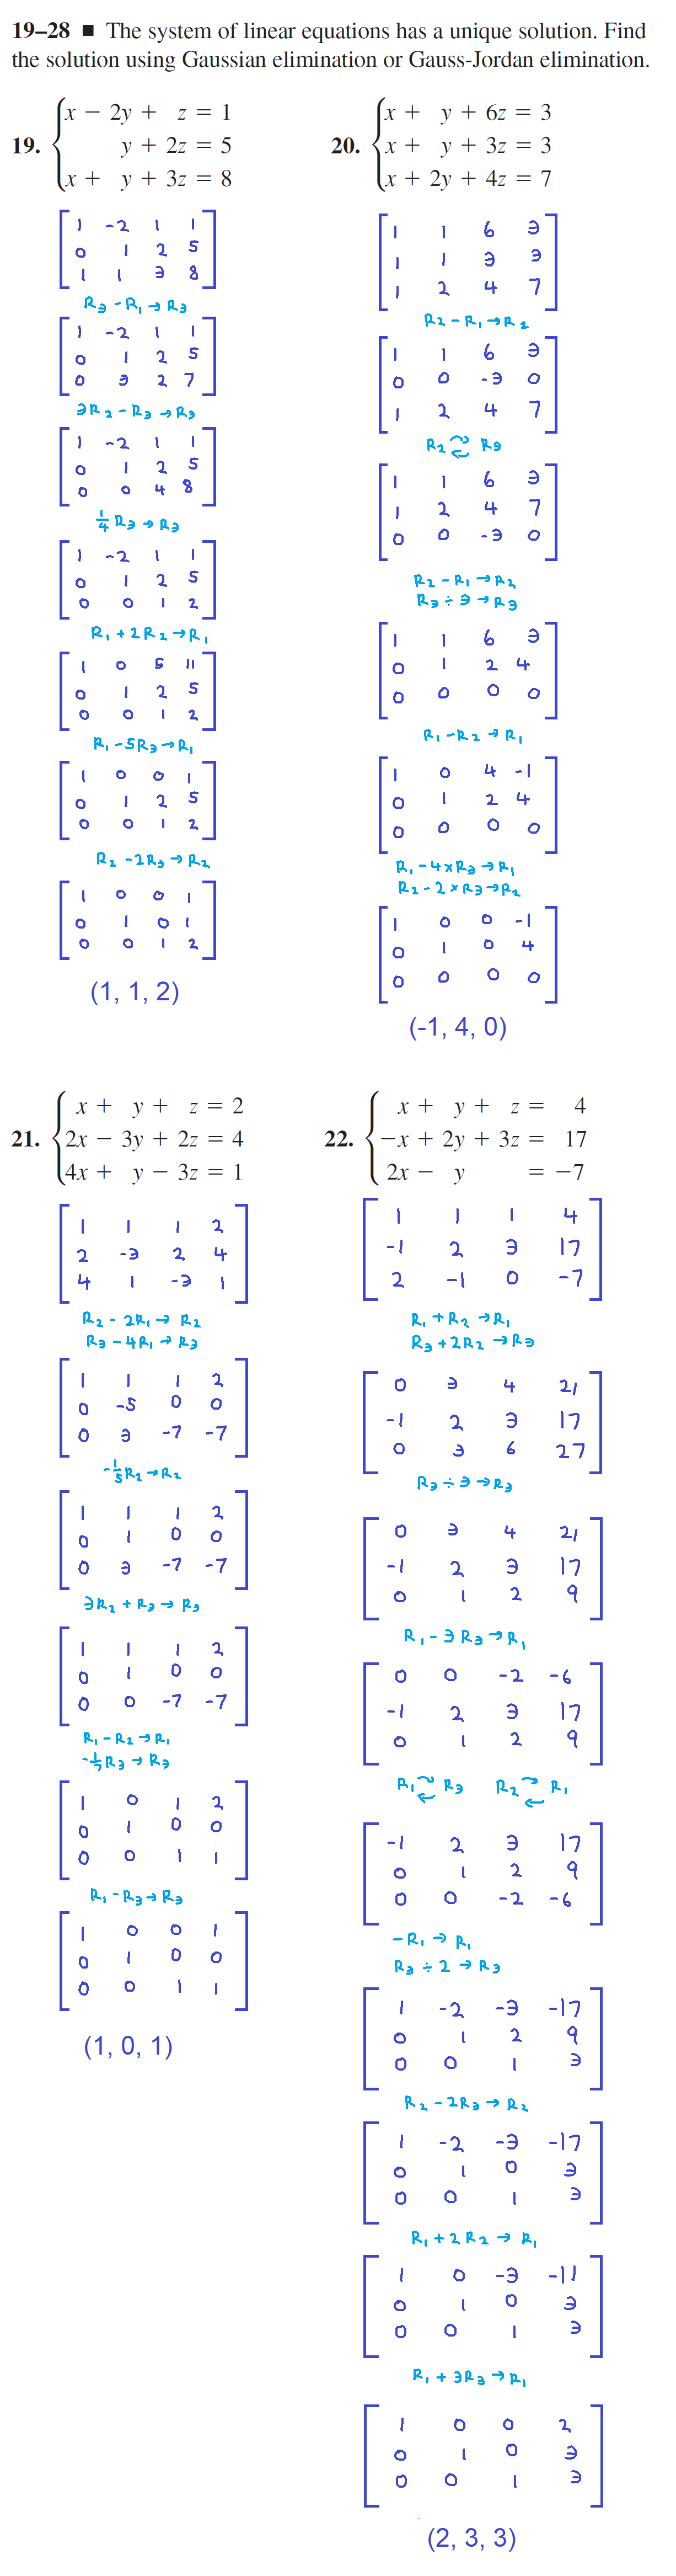 19–28 ■ The system of linear equations has a unique solution. Find
the solution using Gaussian elimination or Gauss-Jordan elimination.
19. { x − 2y + z = 1
y + 2z = 5
x + y + 3z = 8
1 -2 1 1
0 1 2 5
1 1 3 8
R3 - R1 → R3
1 -2 1 1
0 1 2 5
0 3 2 7
3R2 - R3 → R3
1 -2 1 1
0 1 2 5
0 0 4 8
1/4 R3 → R3
1 -2 1 1
0 1 2 5
0 0 1 2
R1 + 2R2 → R1
1 0 5 11
0 1 2 5
0 0 1 2
R1 - 5R3 → R1
1 0 0 1
0 1 2 5
0 0 1 2
R2 - 2R3 → R2
1 0 0 1
0 1 0 1
0 0 1 2
(1, 1, 2)
20. { x + y + 6z = 3
x + y + 3z = 3
x + 2y + 4z = 7
1 1 6 3
1 1 3 3
1 2 4 7
R2 - R1 → R2
1 1 6 3
0 0 -3 0
1 2 4 7
R2 ⇄ R3
1 1 6 3
1 2 4 7
0 0 -3 0
R2 - R1 → R2
R3 ÷ 3 → R3
1 1 6 3
0 1 2 4
0 0 0 0
R1 - R2 → R1
1 0 4 -1
0 1 2 4
0 0 0 0
R1 - 4×R3 → R1
R2 - 2×R3 → R2
1 0 0 -1
0 1 0 4
0 0 0 0
(-1, 4, 0)
21. { x + y + z = 2
2x − 3y + 2z = 4
4x + y − 3z = 1
1 1 1 2
2 -3 2 4
4 1 -3 1
R2 - 2R1 → R2
R3 - 4R1 → R3
1 1 1 2
0 -5 0 0
0 3 -7 -7
-1/5 R2 → R2
1 1 1 2
0 1 0 0
0 3 -7 -7
3R2 + R3 → R3
1 1 1 2
0 1 0 0
0 0 -7 -7
R1 - R2 → R1
-1/7 R3 → R3
1 0 1 2
0 1 0 0
0 0 1 1
R1 - R3 → R3
1 0 0 1
0 1 0 0
0 0 1 1
(1, 0, 1)
22. { x + y + z = 4
−x + 2y + 3z = 17
2x − y = −7
1 1 1 4
-1 2 3 17
2 -1 0 -7
R1 + R2 → R1
R3 + 2R2 → R3
0 3 4 21
-1 2 3 17
0 3 6 27
R3 ÷ 3 → R3
0 3 4 21
-1 2 3 17
0 1 2 9
R1 - 3R3 → R1
0 0 -2 -6
-1 2 3 17
0 1 2 9
R1 ⇄ R3 R2 ⇄ R1
-1 2 3 17
0 1 2 9
0 0 -2 -6
-R1 → R1
R3 ÷ 2 → R3
1 -2 -3 -17
0 1 2 9
0 0 1 3
R2 - 2R3 → R2
1 -2 -3 -17
0 1 0 3
0 0 1 3
R1 + 2R2 → R1
1 0 -3 -11
0 1 0 3
0 0 1 3
R1 + 3R3 → R1
1 0 0 2
0 1 0 3
0 0 1 3
(2, 3, 3)